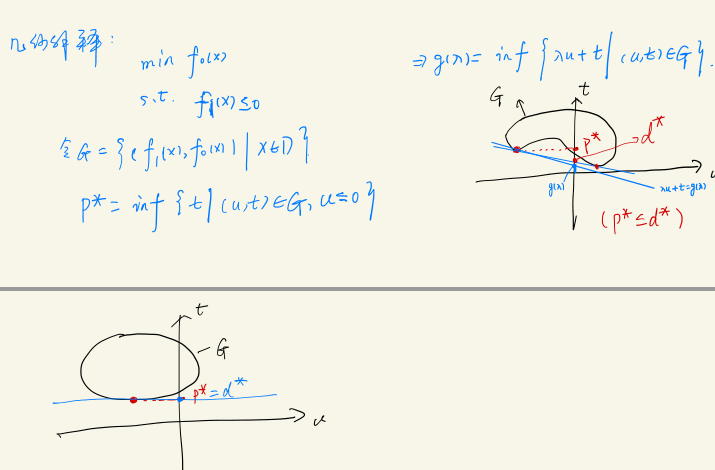 几何解释:
min f₀(x)
s.t. f₁(x)≤0
令G={(f₁(x),f₀(x))|x∈D}
p*=inf{t|(u,t)∈G,u≤0}
⇒g(λ)=inf{λu+t|(u,t)∈G}.
G
t
p*
d*
g(λ)
λu+t=g(λ)
u
(p*≤d*)
t
G
p*=d*
u